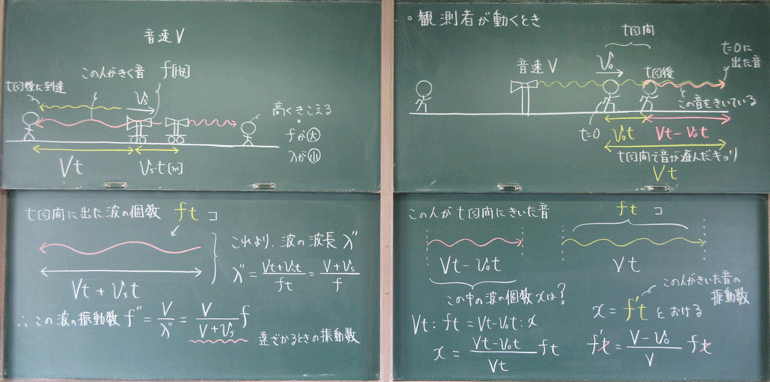 音速V
t秒後に到達
この人がきく音 f[Hz]
Vs
高くきこえる
fが大
λが小
Vt
Vst[m]
t秒間に出た波の個数 ft コ
Vt + Vst
これより、波の波長 λ''
λ'' = (Vt+Vst)/(ft) = (V+Vs)/f
∴この波の振動数 f'' = V/λ'' = V/(V+Vs) f
遠ざかるときの振動数
。観測者が動くとき
t秒間
音速V
Vo
t秒後
t=0に
出た音
この音をきいている
t=0
Vot
Vt-Vot
t秒間で音が進んだキョリ
Vt
この人がt秒間にきいた音
ft コ
Vt-Vot
Vt
この中の波の個数xは?
Vt : ft = Vt-Vot : x
x = (Vt-Vot)/(Vt) ft
この人がきいた音の
振動数
x = f't とおける
f't = (V-Vo)/V ft